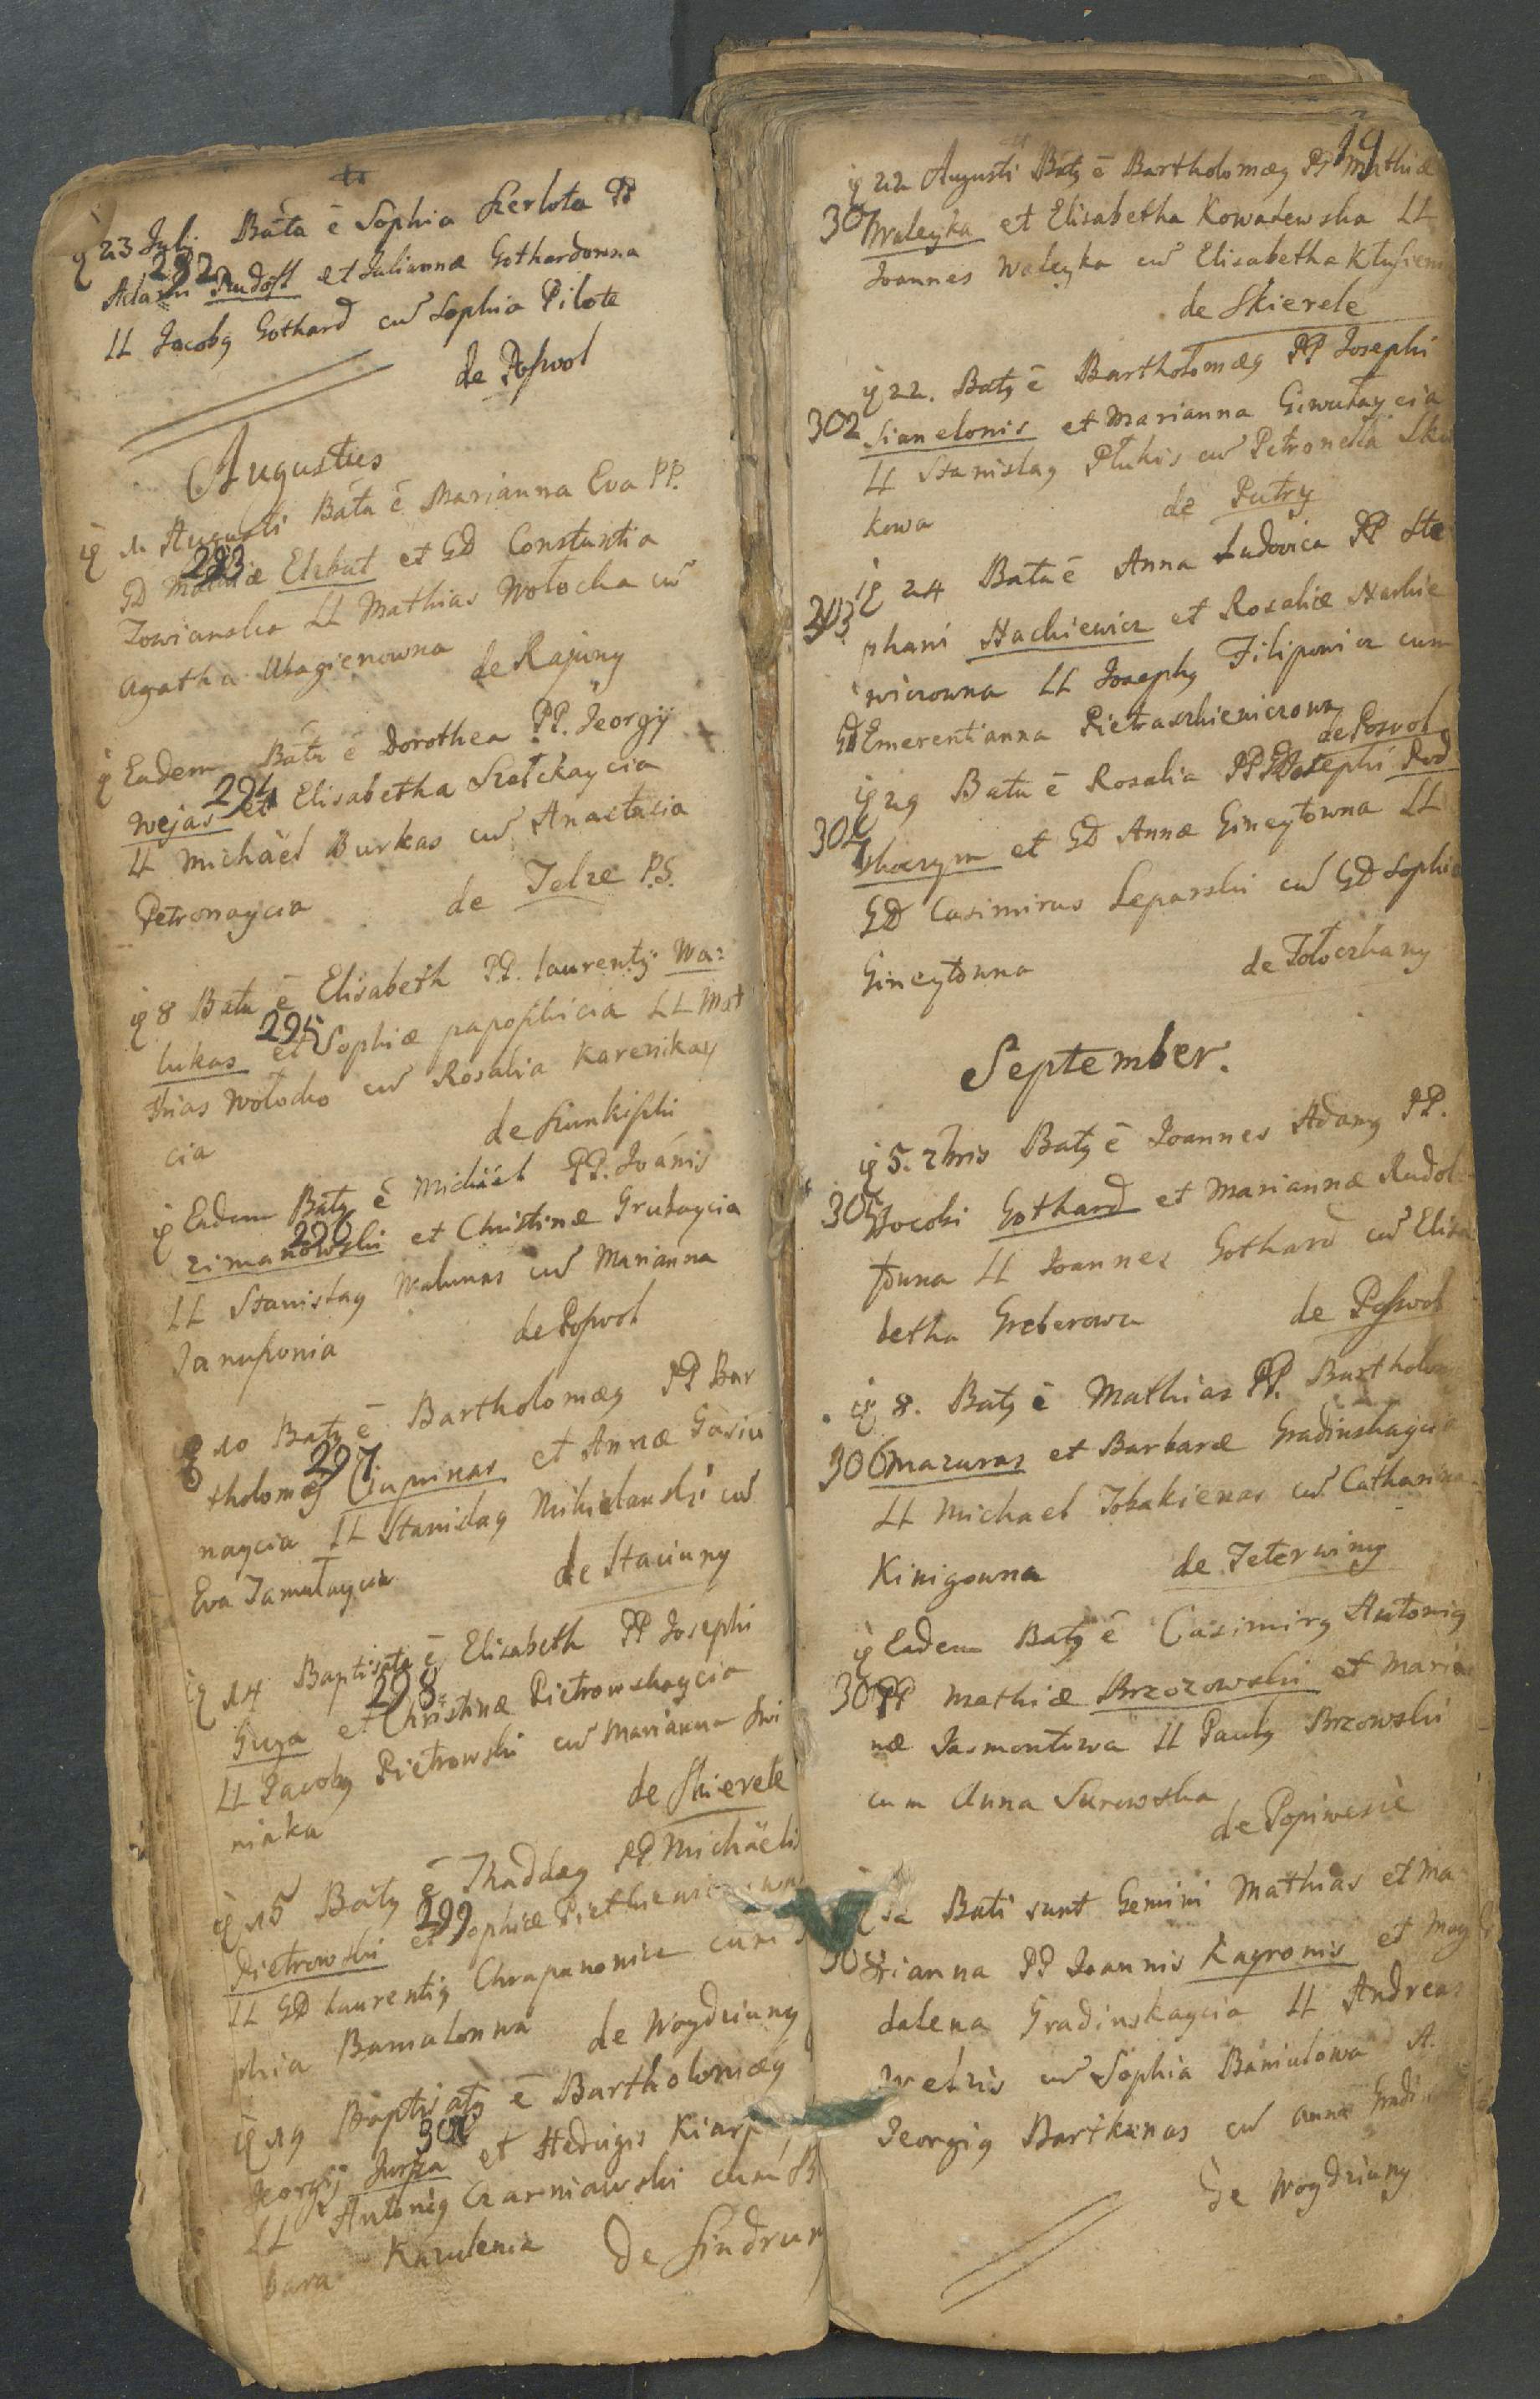 23 Julij Bata ē Sophia Szerlota PP
292
Adami Rudolt et Julianna Gothardowna
LL Jacobg Gothard cū Sophia Pilote
de Poswol
Augustus
1. Augusti Bata ē Marianna Eva PP.
293
GD Mathiæ Elzbut et GD Constantia
Towianska LL Mathias Wołocka cū
Agatha
de Rajuny
Eadem Bata ē Dorothea PP. Georgij
294
Wejas et Elisabetha Szotckaycia
LL Michäel Burkas cū Anastacia
Petronaycia de Telze P.S.
8 Bata ē Elisabeth PP. laurentij Wa=
295
lukas et Sophiæ paposhicia LL Mat
thias Wołocko cū Rosalia Karenikay
cia de Szunkiszki
Eadem Batg ē Michäel PP. Joānis
296
Zimanowski et Christinæ Grutaycia
LL Stanislag Malunas cū Marianna
Januszonia de Poswol
10 Batg ē Bartholomæg PP Bar
297
tholomæj Ciupinas et Annæ Gasiu
naycia LL Stanislag Mikielanski cū
Eva Jamutaycia de Staciuny
14 Baptisata ē Elisabeth PP Josephi
298
Guza et Christinæ Pietrowskaycia
LL Jacobg Pietrowski cū Marianna Swi
niaka de Skierele
15 Batg ē Thaddæg PP. Michäelis
299
Pietrowski et Sophiæ
LL GD laurentig Chrapanowicz cum S
phia Bamalonna de Woydziuny
19 Baptisatg ē Bartholomæg
300
Georgij Jursza et Hedvigis Kiarp
LL Antonig Czarniawski cum B
bara Kazulenia de Sindriun
19
22 Augusti Batg ē Bartholomæg PP Mathiæ
301 Waleyka et Elisabetha Kowalewska LL
Joannes Waleyka cū Elisabetha
de Skierele
22. Batg ē Bartholomæg PP Josephi
302 Sianelonis et Marianna Giwutaycia
LL Stanislag Plukis cū Petronella Sku
kowa de Putry
24 Bata ē Anna Ludovica PP Ste
303 phani Hackiewicz et Rosaliæ Hackie
wiczowna LL Josephg Filipowicz cum
GD Emerentianna Pietraszkiewiczowna
de Poswol
29 Bata ē Rosalia PP GD Josephi Pod
304 skoczym et GD Annæ Gineytowna LL
GD Casimirus Leparski cū GD Sophia
Gineytowna de Tołoczkany
September.
5. 7bris Batg ē Joannes Adamg PP.
305 Jacobi Gothard et Mariannæ Rudol
towna LL Joannes Gothard cū Elisa
betha Greberowa de Poswol
8. Batg ē Mathias PP. Bartholom
306 Mazuras et Barbaræ Gradinskaycia
LL Michael Tobakienas cū Catharina
Kinigowna de Teterwiny
Eadem Batg ē Casimirg Antonig
307 PP Mathiæ Brzozowski et Marian
næ Jasmontowa LL Paulg Brzowski
cum Anna Surowska
de Popiwesie
12 Bati sunt Gemini Mathias et Ma
308 rianna PP Joannis Kayronis et Mag
dalena Gradinskaycia LL Andreas
Welzis cū Sophia Baniulowa A.
Georgig Bartkunas cū Anna Gradin
de Woydziuny